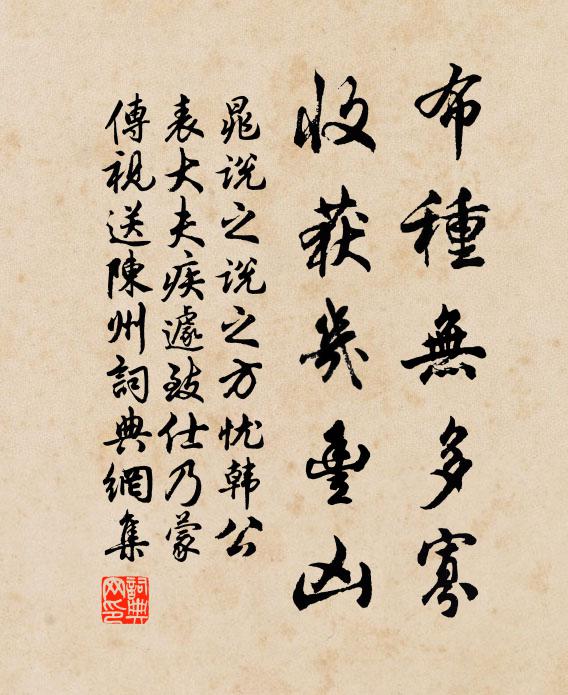 布種無多寡
收获幾豐凶
晁說之說之方忧韩公
表大夫疾遽致仕乃蒙
傳視送陳州詞典網集
詞典
网印